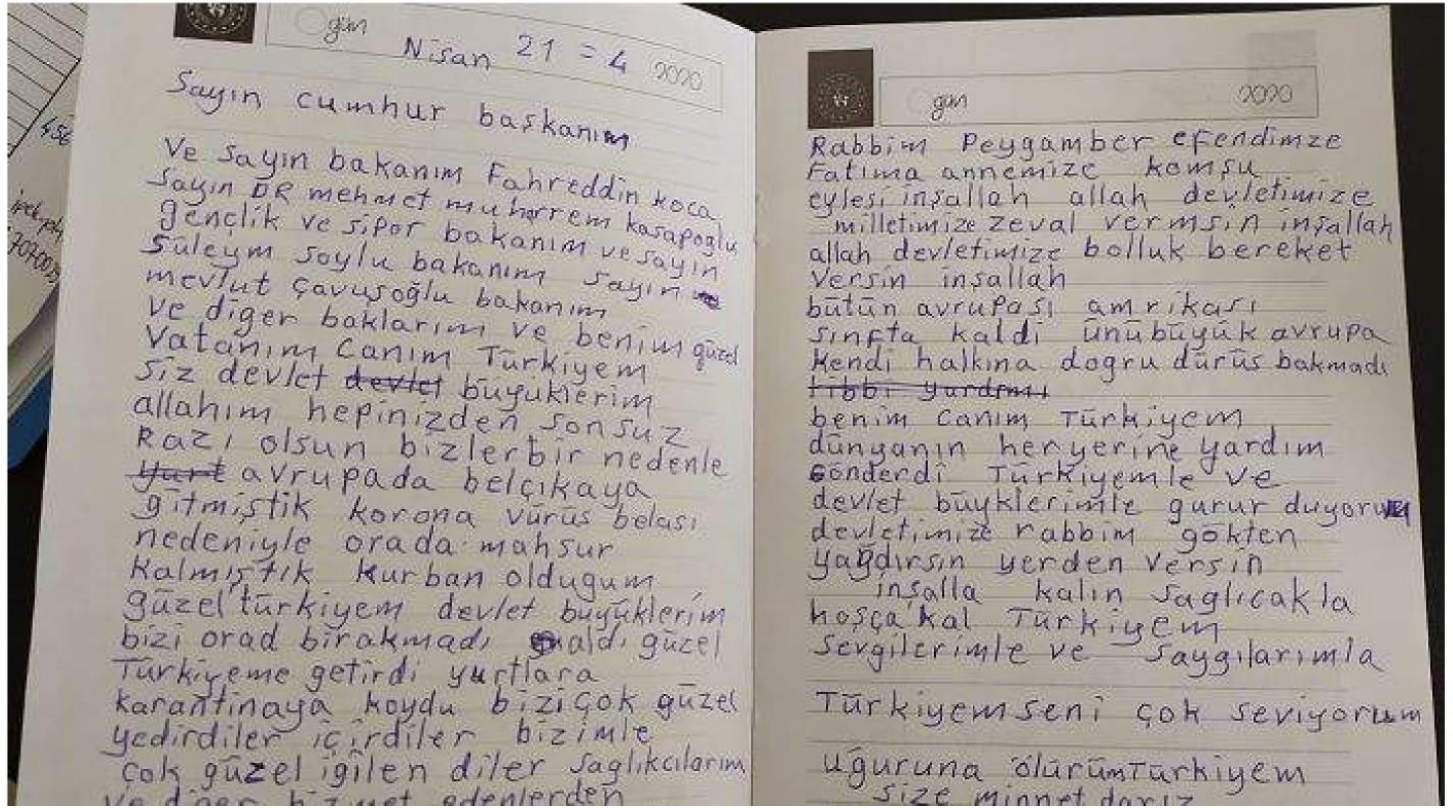 456
gün
Nisan 21 = 4 2020
Sayın cumhur başkanım
Ve Sayın bakanım Fahreddin koca
Sayın DR mehmet muharrem kasapoğlu
gençlik ve sipor bakanım ve sayın
Süleym soylu bakanım Sayın
mevlut çavuşoğlu bakanım
ve diger baklarım ve benim güzel
Vatanım Canım Türkiyem
Siz devlet devlet büyüklerim
allahım hepinizden sonsuz
Razı olsun bizlerbir nedenle
yurt avrupada belçikaya
gitmiştik korona vürüs belası
nedeniyle orada mahsur
Kalmıştık Kurban oldugum
güzel türkiyem devlet büyüklerim
bizi orad birakmadı aldı güzel
Türkiyeme getirdi yurtlara
karantinaya koydu bizi çok güzel
yedirdiler içirdiler bizimle
çok güzel igilen diler saglıkcılarım
ve diger hizmet edenlerden
gün 2020
Rabbim Peygamber efendimze
Fatıma annemize komşu
eylesi inşallah allah devletimize
milletimize zeval vermsin inşallah
allah devletimize bolluk bereket
versin inşallah
bütün avrupası amrikası
sınfta kaldi ünübüyük avrupa
Kendi halkına dogru dürüs bakmadı
tıbbi yardımı
benim canım Türkiyem
dünyanın heryerine yardım
Gönderdi Türkiyemle ve
devlet büyklerimle gurur duyorum
devletimize rabbim gökten
yağdırsın yerden versin
inşalla kalın saglıcakla
hoşça kal Türkiyem
sevgilerimle ve saygılarımla
Türkiyem seni çok seviyorum
uğuruna ölürüm Türkiyem
size minnet darız